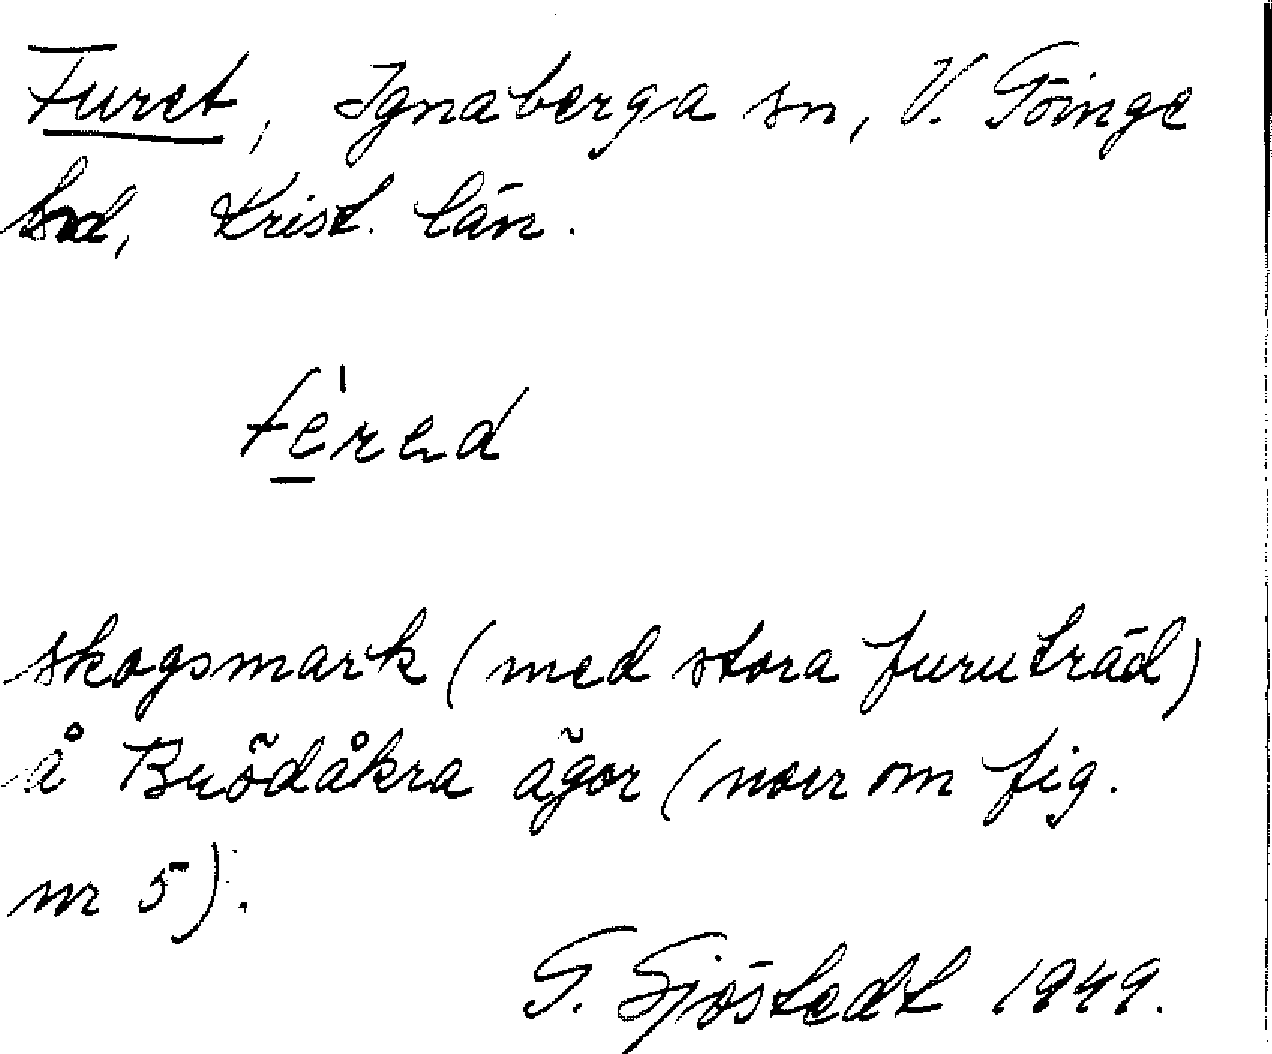 Furet, Ignaberga sn, V. Göinge
hd, Krist. län.
fe̠'rəd
skogsmark (med stora furuträd)
å Brödåkra ägor (norr om fig.
nr 5).
G. Sjöstedt 1949.